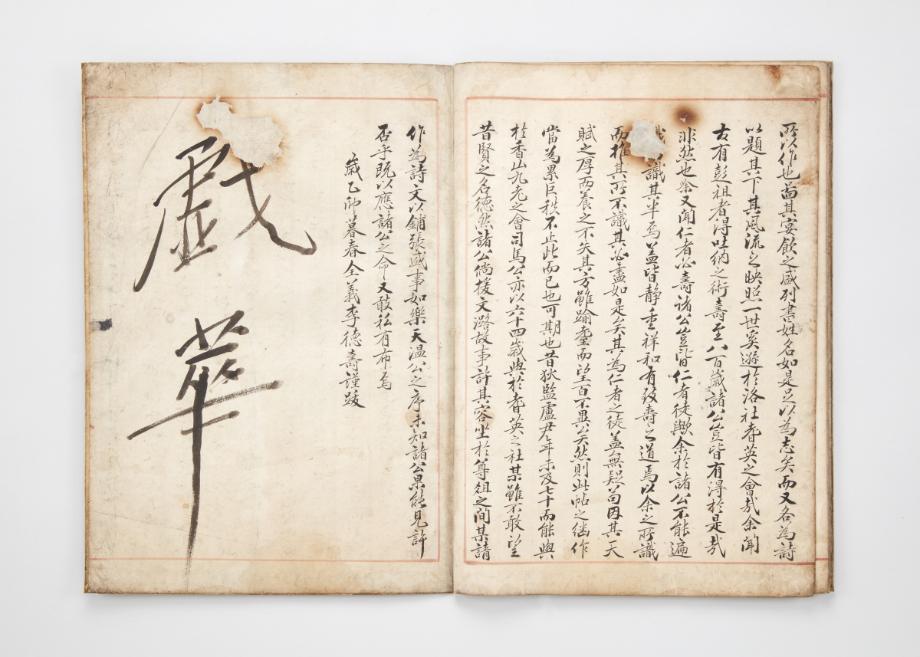 所以作也啚其宴飲之盛列書姓名如是足以為志矣而又各為詩
以題其下其風流之映照一世奚遜於洛社耆英之會哉余聞
古有彭祖者得吐納之術壽至八百歲諸公豈皆有得於是哉
非然也余又聞仁者必壽諸公豈皆仁者徒歟余於諸公不能遍
識其半焉蓋皆靜重祥和有致壽之道焉以余之所識
而推其所不識其必盡如是矣其為仁者之徒盖無疑苟因其天
賦之厚而養之不失其方雖踰耋而望百不異矣然則此帖之継作
當為累巨秩不止此而已也可期也昔狄監盧尹年未及七十而能與
於香山九老之會司馬公亦以六十四歲與於耆英之社某雖不敢望
昔賢之名德然諸公倘援文潞故事許其容坐於尊俎之間某請
作為詩文以鋪張盛事如樂天温公之序未知諸公果能見許
否乎既以應諸公之命又敢私有布焉
歲乙卯暮春全義李德壽謹跋
戱萃